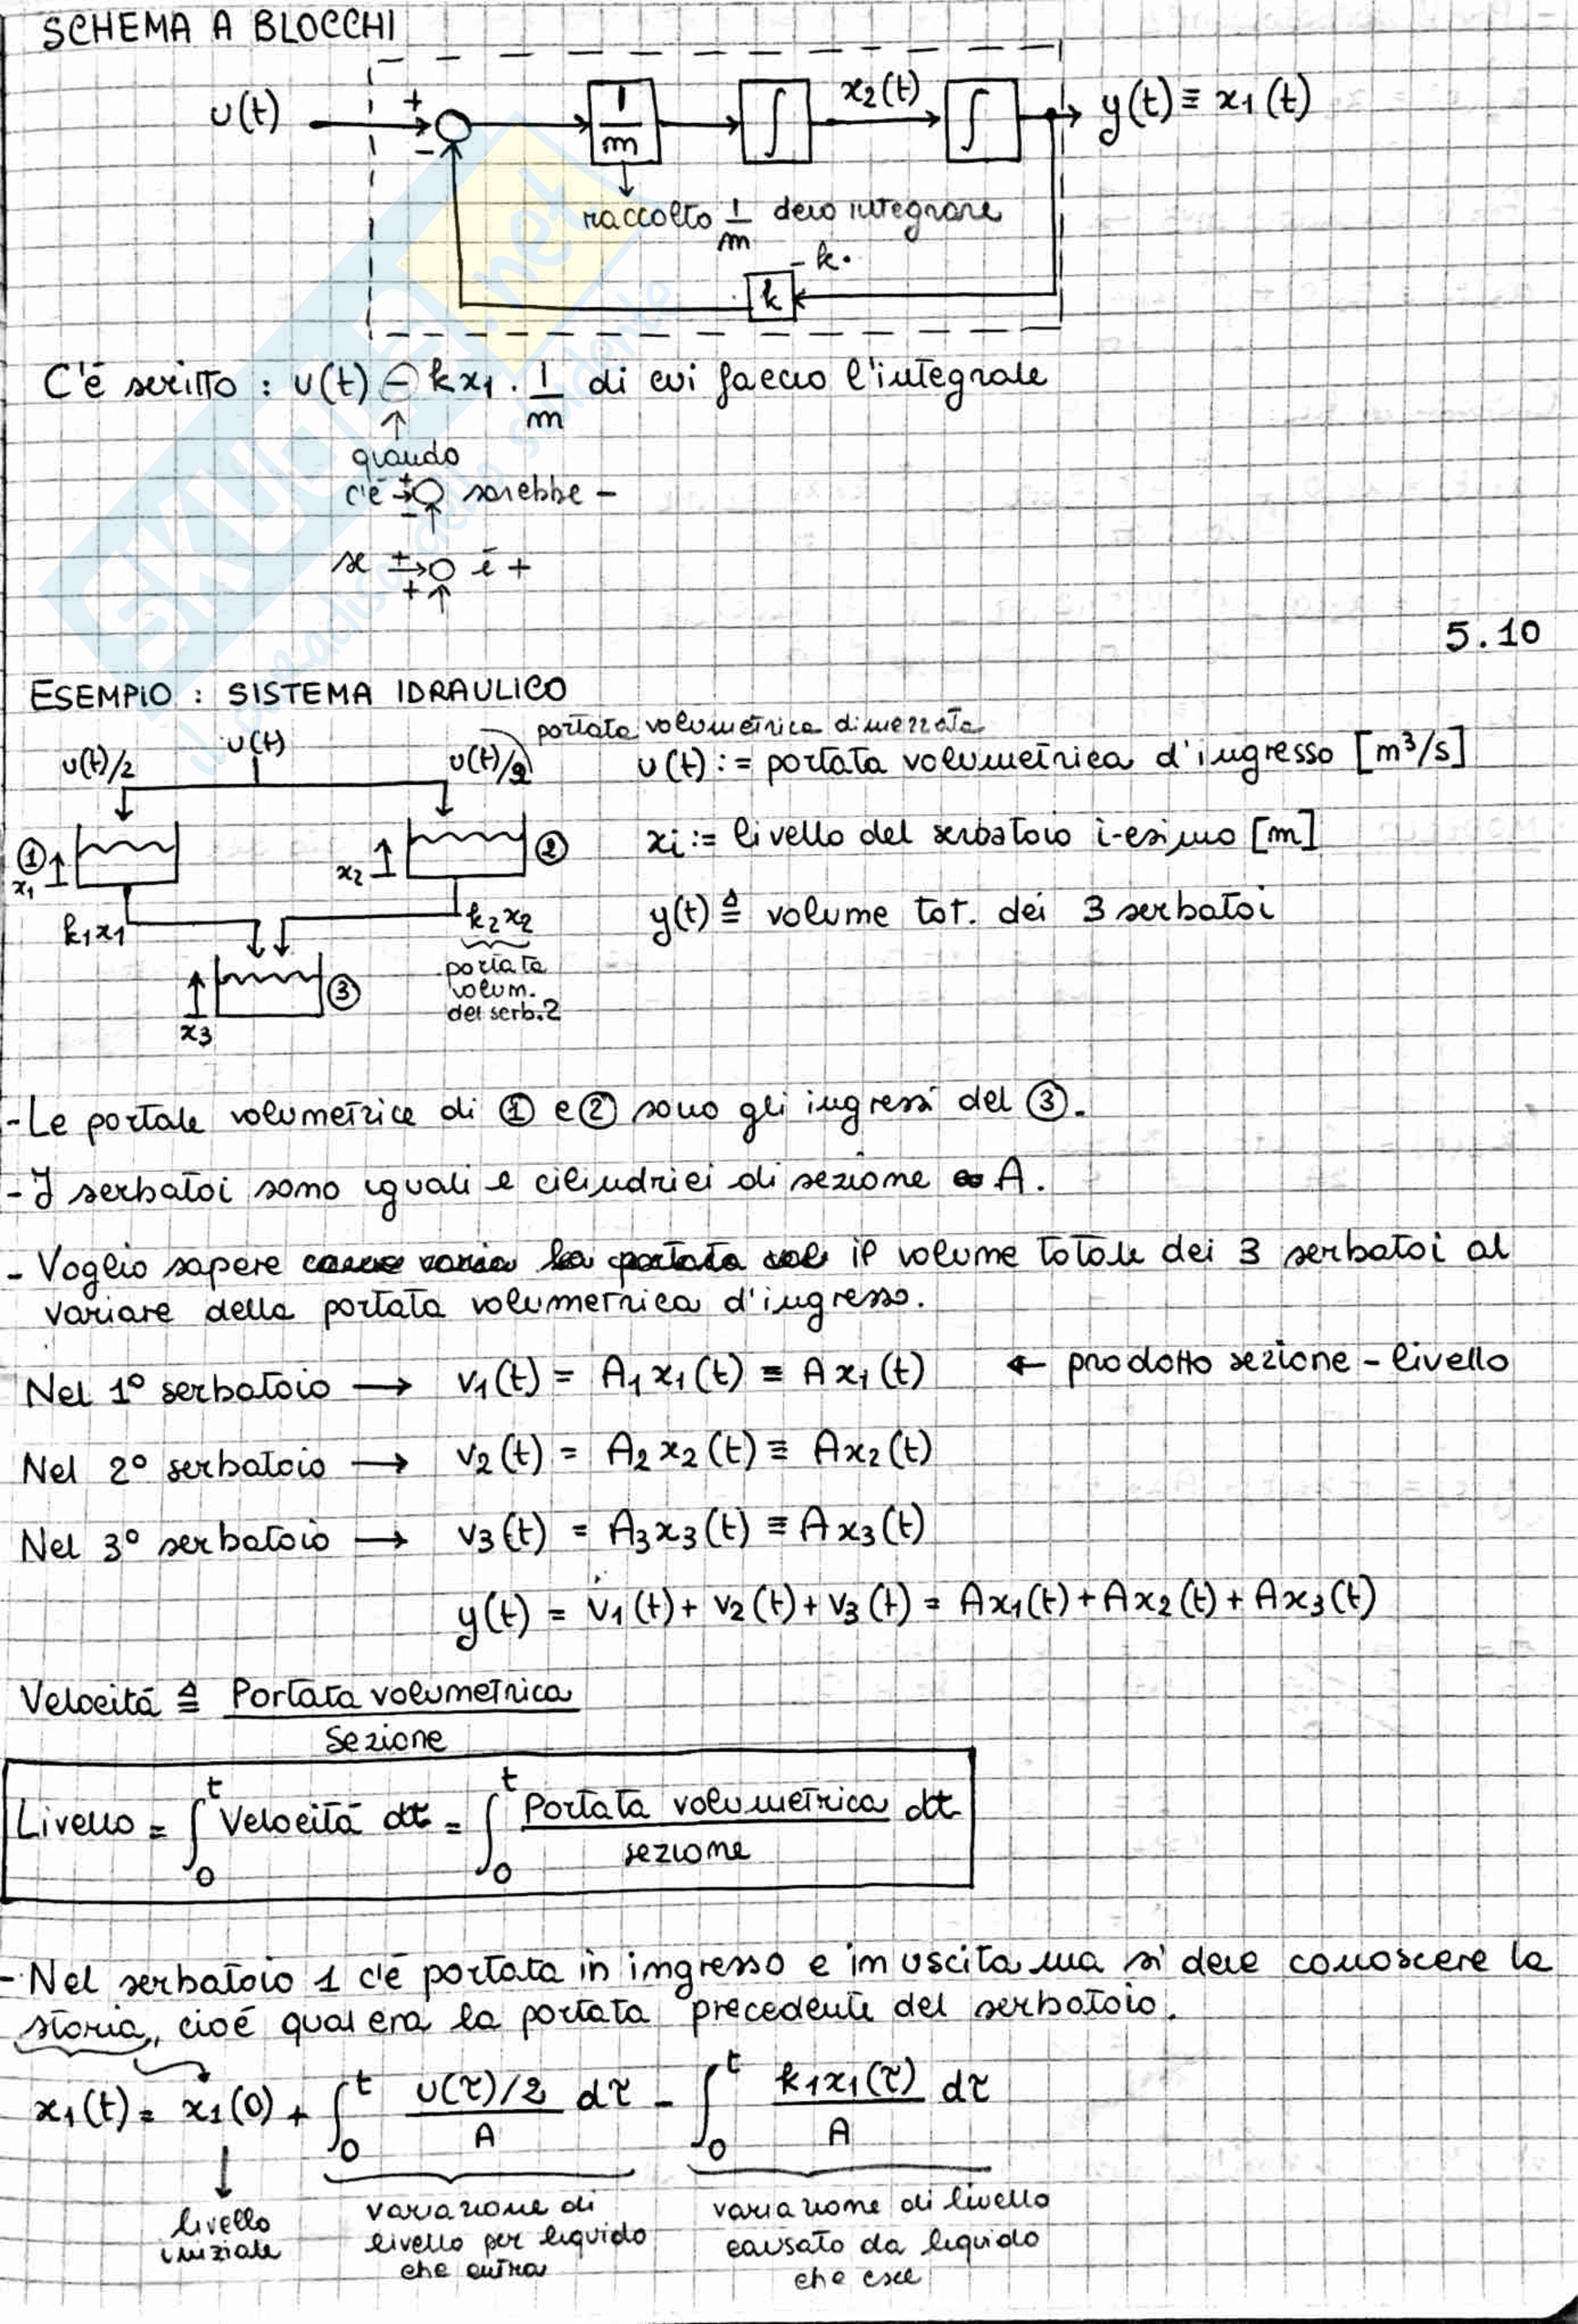 SCHEMA A BLOCCHI
u(t) + - 1/m ∫ x2(t) ∫ y(t) ≡ x1(t)
raccolto 1/m devo integrare
- k.
k
C'é scritto : u(t) - kx1 . 1/m di cui faccio l'integrale
quando
c'é + - sarebbe -
se + + é +
5.10
ESEMPIO : SISTEMA IDRAULICO
portata volumetrica dimezzata
u(t)/2 u(t) u(t)/2
u(t) := portata volumetrica d'ingresso [m³/s]
① x1 x2 ②
xi := livello del serbatoio i-esimo [m]
k1x1 k2x2
y(t) ≜ volume tot. dei 3 serbatoi
portata
volum.
del serb.2
x3 ③
- Le portate volumetrice di ① e ② sono gli ingressi del ③.
- I serbatoi sono uguali e cilindrici di sezione A.
- Voglio sapere come varia la portata vol il volume totale dei 3 serbatoi al
variare della portata volumetrica d'ingresso.
Nel 1° serbatoio → v1(t) = A1x1(t) ≡ Ax1(t) ← prodotto sezione - livello
Nel 2° serbatoio → v2(t) = A2x2(t) ≡ Ax2(t)
Nel 3° serbatoio → v3(t) = A3x3(t) ≡ Ax3(t)
y(t) = v1(t) + v2(t) + v3(t) = Ax1(t) + Ax2(t) + Ax3(t)
Velocitá ≜ Portata volumetrica
Sezione
Livello = ∫0t Velocitá dt = ∫0t Portata volumetrica dt
sezione
- Nel serbatoio 1 c'é portata in ingresso e in uscita ma si deve conoscere la
storia, cioé qual era la portata precedente del serbatoio.
x1(t) = x1(0) + ∫0t u(τ)/2 / A dτ - ∫0t k1x1(τ) / A dτ
livello
iniziale
variazione di
livello per liquido
che entra
variazione di livello
causato da liquido
che esce
SKUOLA.net